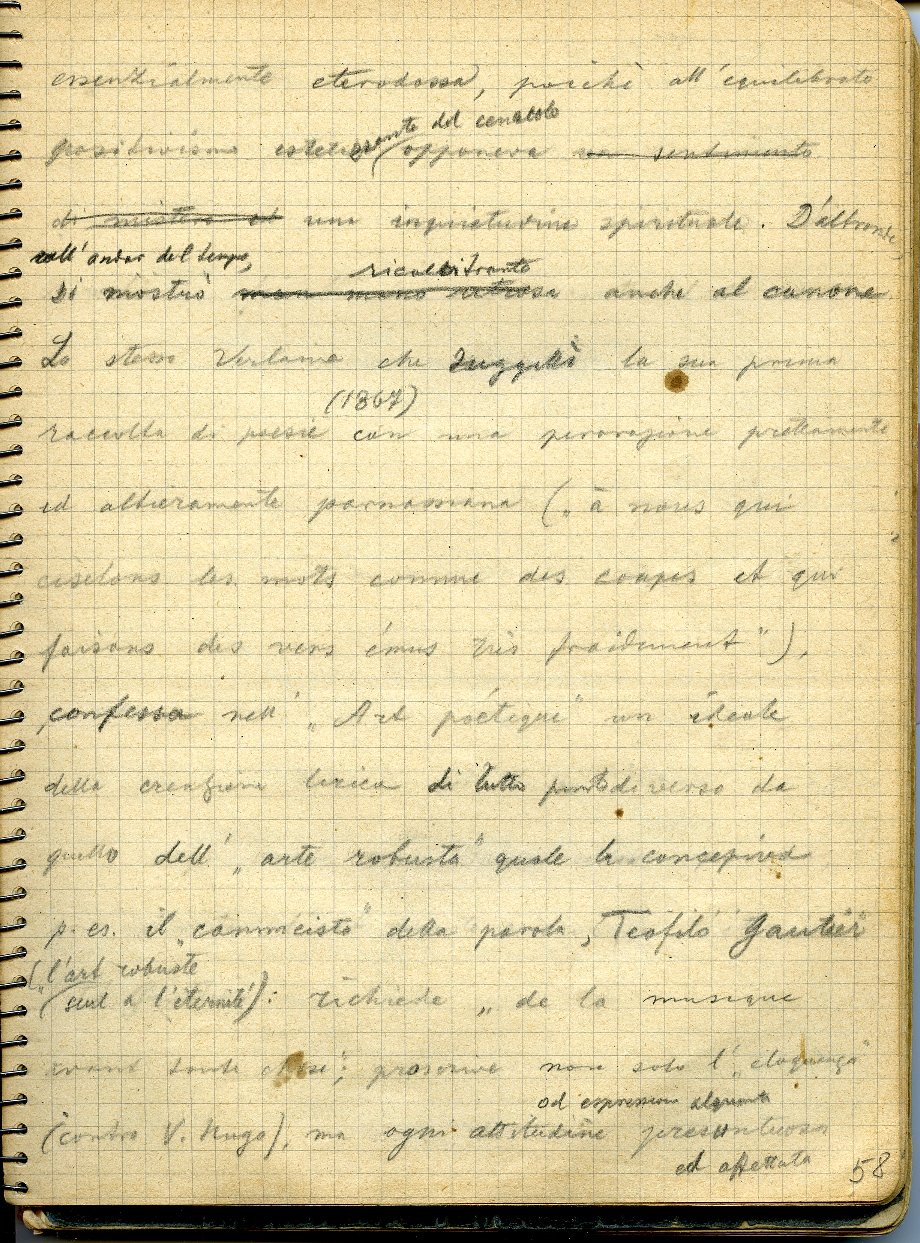 essenzialmente eterodossa, poichè all'equilibrato
positivismo estetizzante del cenacolo opponeva un sentimento
di mistero ed una inquietudine spirituale. D'altronde,
coll'andar del tempo,
si mostrò man mano ritrosa ricalcitrante anche al canone.
Lo stesso Verlaine che suggellò la sua prima
(1867)
raccolta di poesie con una perorazione prettamente
ed altieramente parnassiana („à nous qui
ciselons les mots comme des coupes et qui
faisons des vers émus très froidement"),
confessa nell' „Art poétique" un ideale
della creazione lirica di tutto punto diverso da
quello dell' „arte robusta" quale la concepiva
p. es. il „camucista" della parola, Teofilo Gautier
(„l'art robuste
seul a l'éternité"): richiede „de la musique
avant toute chose"; proscrive non solo l' „eloquenza"
od espressione alquanto
(contro V. Hugo), ma ogni attitudine presuntuosa
ed affettata
58